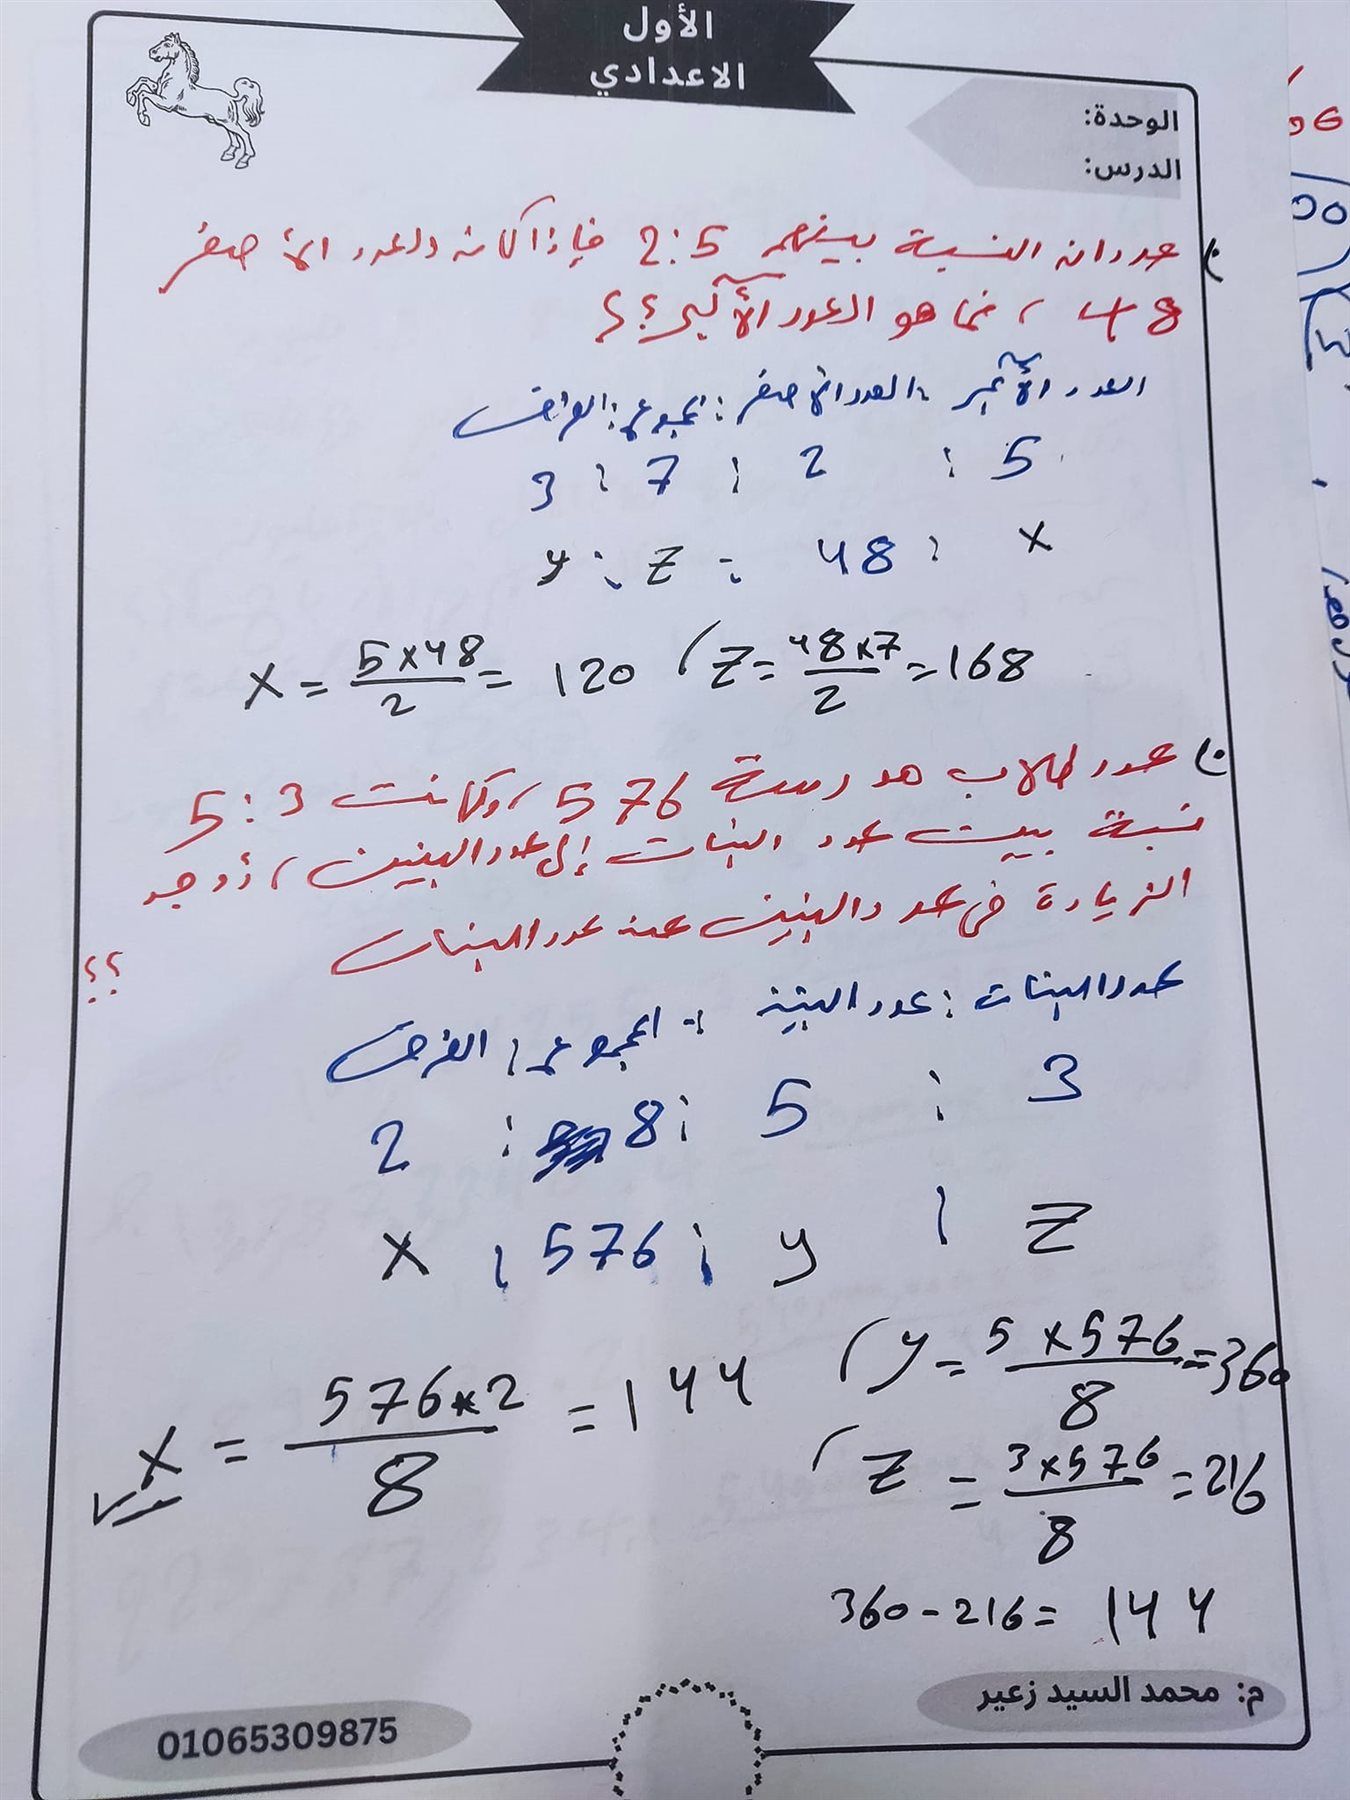 الأول
الاعدادي
الوحدة:
الدرس:
عددان النسبة بينهم 2:5 فإذا كان العدد الأصغر
48 ، فما هو العدد الأكبر؟؟
العدد الأكبر : العدد الأصغر : المجموع : الفرق
5 : 2 : 7 : 3
x : 48 : z : y
x = 5×48/2 = 120 , z = 48×7/2 = 168
عدد طلاب مدرسة 576 ، وكانت 5:3
نسبة بين عدد البنات إلى عدد البنين ، أوجد
الزيادة في عدد البنين عن عدد البنات
؟؟
عدد البنات : عدد البنين : المجموع : الفرق
3 : 5 : 8 : 2
z : y : 576 : x
x = 576×2/8 = 144 , y = 5×576/8 = 360
, z = 3×576/8 = 216
360-216= 144
م: محمد السيد زعير
01065309875